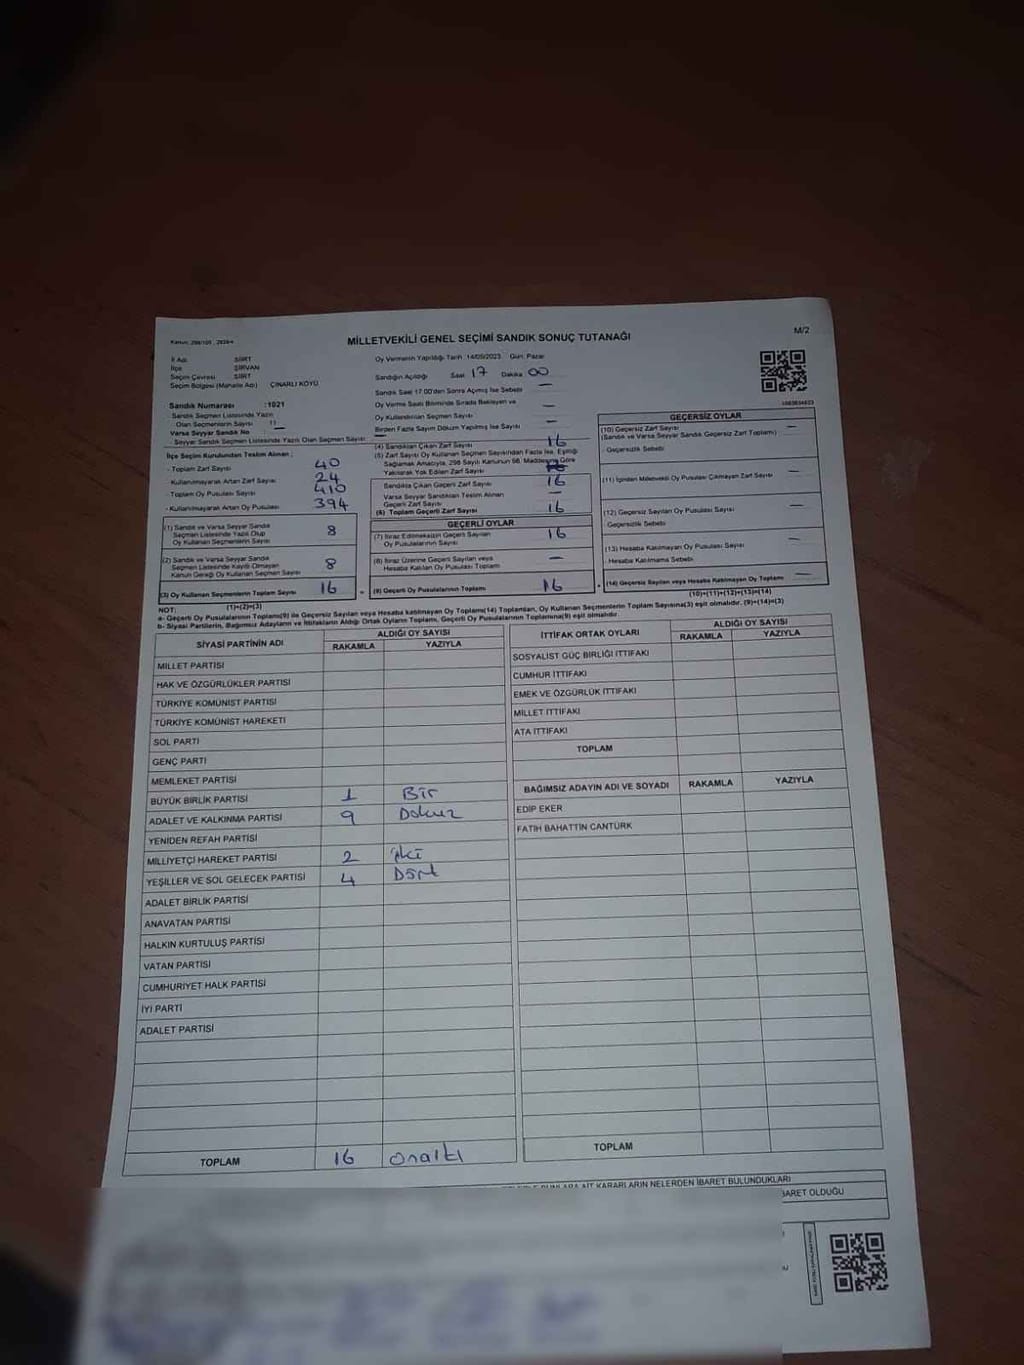 Kanun: 298/105 , 2839/4
MİLLETVEKİLİ GENEL SEÇİMİ SANDIK SONUÇ TUTANAĞI
M/2
İl Adı SİİRT
İlçe ŞİRVAN
Seçim Çevresi SİİRT
Seçim Bölgesi (Mahalle Adı) ÇINARLI KÖYÜ
Sandık Numarası :1021
Sandık Seçmen Listesinde Yazılı
Olan Seçmenlerin Sayısı 11
Varsa Seyyar Sandık No —
Seyyar Sandık Seçmen Listesinde Yazılı Olan Seçmen Sayısı
Oy Vermenin Yapıldığı Tarih 14/05/2023 Gün: Pazar
Sandığın Açıldığı Saat 17 Dakika 00
Sandık Saat 17.00'den Sonra Açılmış İse Sebebi —
Oy Verme Saati Bitiminde Sırada Bekleyen ve
Oy Kullandırılan Seçmen Sayısı —
Birden Fazla Sayım Döküm Yapılmış İse Sayısı —
İlçe Seçim Kurulundan Teslim Alınan ;
- Toplam Zarf Sayısı 40
- Kullanılmayarak Artan Zarf Sayısı 24
- Toplam Oy Pusulası Sayısı 410
- Kullanılmayarak Artan Oy Pusulası 394
(1) Sandık ve Varsa Seyyar Sandık
Seçmen Listesinde Yazılı Olup
Oy Kullanan Seçmenlerin Sayısı 8
(2) Sandık ve Varsa Seyyar Sandık
Seçmen Listesinde Kayıtlı Olmayan
Kanun Gereği Oy Kullanan Seçmen Sayısı 8
(3) Oy Kullanan Seçmenlerin Toplam Sayısı 16
(1)+(2)=(3)
(4) Sandıktan Çıkan Zarf Sayısı 16
(5) Zarf Sayısı Oy Kullanan Seçmen Sayısından Fazla İse, Eşitliği
Sağlamak Amacıyla, 298 Sayılı Kanunun 98. Maddesine Göre
Yakılarak Yok Edilen Zarf Sayısı
Sandıkta Çıkan Geçerli Zarf Sayısı 16
Varsa Seyyar Sandıktan Teslim Alınan
Geçerli Zarf Sayısı —
(6) Toplam Geçerli Zarf Sayısı 16
GEÇERLİ OYLAR
(7) İtiraz Edilmeksizin Geçerli Sayılan
Oy Pusulalarının Sayısı 16
(8) İtiraz Üzerine Geçerli Sayılan veya
Hesaba Katılan Oy Pusulası Toplamı —
= (9) Geçerli Oy Pusulalarının Toplamı 16
GEÇERSİZ OYLAR
(10) Geçersiz Zarf Sayısı —
(Sandık ve Varsa Seyyar Sandık Geçersiz Zarf Toplamı)
Geçersizlik Sebebi
(11) İçinden Milletvekili Oy Pusulası Çıkmayan Zarf Sayısı —
(12) Geçersiz Sayılan Oy Pusulası Sayısı —
Geçersizlik Sebebi
(13) Hesaba Katılmayan Oy Pusulası Sayısı —
Hesaba Katılmama Sebebi
+ (14) Geçersiz Sayılan veya Hesaba Katılmayan Oy Toplamı —
(10)+(11)+(12)+(13)=(14)
NOT:
a- Geçerli Oy Pusulalarının Toplamı(9) ile Geçersiz Sayılan veya Hesaba katılmayan Oy Toplamı(14) Toplamları, Oy Kullanan Seçmenlerin Toplam Sayısına(3) eşit olmalıdır. (9)+(14)=(3)
b- Siyasi Partilerin, Bağımsız Adayların ve İttifakların Aldığı Ortak Oyların Toplamı, Geçerli Oy Pusulalarının Toplamına(9) eşit olmalıdır
SİYASİ PARTİNİN ADI ALDIĞI OY SAYISI
RAKAMLA YAZIYLA
MİLLET PARTİSİ
HAK VE ÖZGÜRLÜKLER PARTİSİ
TÜRKİYE KOMÜNİST PARTİSİ
TÜRKİYE KOMÜNİST HAREKETİ
SOL PARTİ
GENÇ PARTİ
MEMLEKET PARTİSİ
BÜYÜK BİRLİK PARTİSİ 1 Bir
ADALET VE KALKINMA PARTİSİ 9 Dokuz
YENİDEN REFAH PARTİSİ
MİLLİYETÇİ HAREKET PARTİSİ 2 iki
YEŞİLLER VE SOL GELECEK PARTİSİ 4 Dört
ADALET BİRLİK PARTİSİ
ANAVATAN PARTİSİ
HALKIN KURTULUŞ PARTİSİ
VATAN PARTİSİ
CUMHURİYET HALK PARTİSİ
İYİ PARTİ
ADALET PARTİSİ
TOPLAM 16 onaltı
İTTİFAK ORTAK OYLARI ALDIĞI OY SAYISI
RAKAMLA YAZIYLA
SOSYALİST GÜÇ BİRLİĞİ İTTİFAKI
CUMHUR İTTİFAKI
EMEK VE ÖZGÜRLÜK İTTİFAKI
MİLLET İTTİFAKI
ATA İTTİFAKI
TOPLAM
BAĞIMSIZ ADAYIN ADI VE SOYADI RAKAMLA YAZIYLA
EDİP EKER
FATİH BAHATTİN CANTÜRK
TOPLAM
BUNLARA AİT KARARLARIN NELERDEN İBARET BULUNDUKLARI
İBARET OLDUĞU